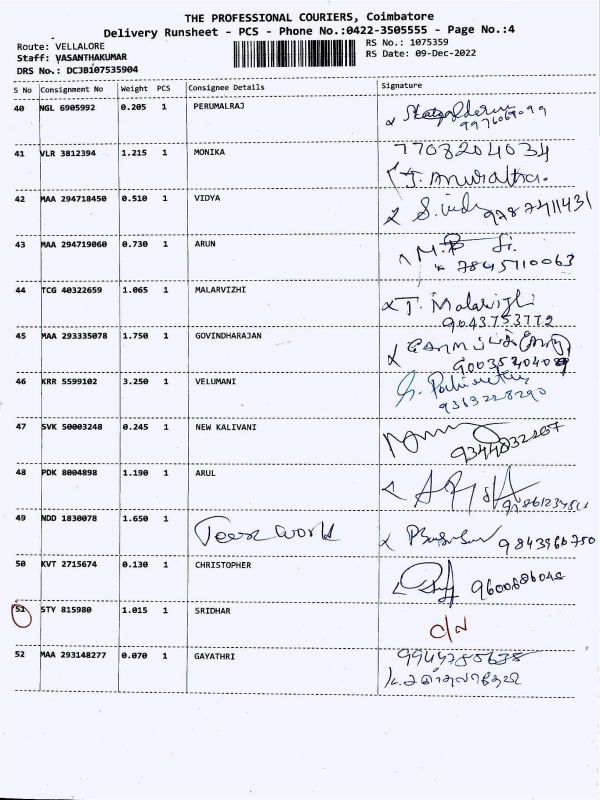 THE PROFESSIONAL COURIERS, Coimbatore
Delivery Runsheet - PCS - Phone No.:0422-3505555 - Page No.:4
Route: VELLALORE
Staff: VASANTHAKUMAR
DRS No.: DCJB107535904
RS No.: 1075359
RS Date: 09-Dec-2022
S No Consignment No Weight PCS Consignee Details Signature
40 NGL 6905992 0.205 1 PERUMALRAJ
41 VLR 3812394 1.215 1 MONIKA 7708204034
42 MAA 294718450 0.510 1 VIDYA 9787411431
43 MAA 294719060 0.730 1 ARUN
7845710063
44 TCG 40322659 1.065 1 MALARVIZHI T. Malarvizhi
9043753772
45 MAA 293335078 1.750 1 GOVINDHARAJAN
46 KRR 5599102 3.250 1 VELUMANI
9363228290
47 SVK 50003248 0.245 1 NEW KALIVANI
9344832207
48 PDK 8004898 1.190 1 ARUL
49 NDD 1830078 1.650 1 World 9843966750
50 KVT 2715674 0.130 1 CHRISTOPHER
51 STY 815980 1.015 1 SRIDHAR C/N
52 MAA 293148277 0.070 1 GAYATHRI